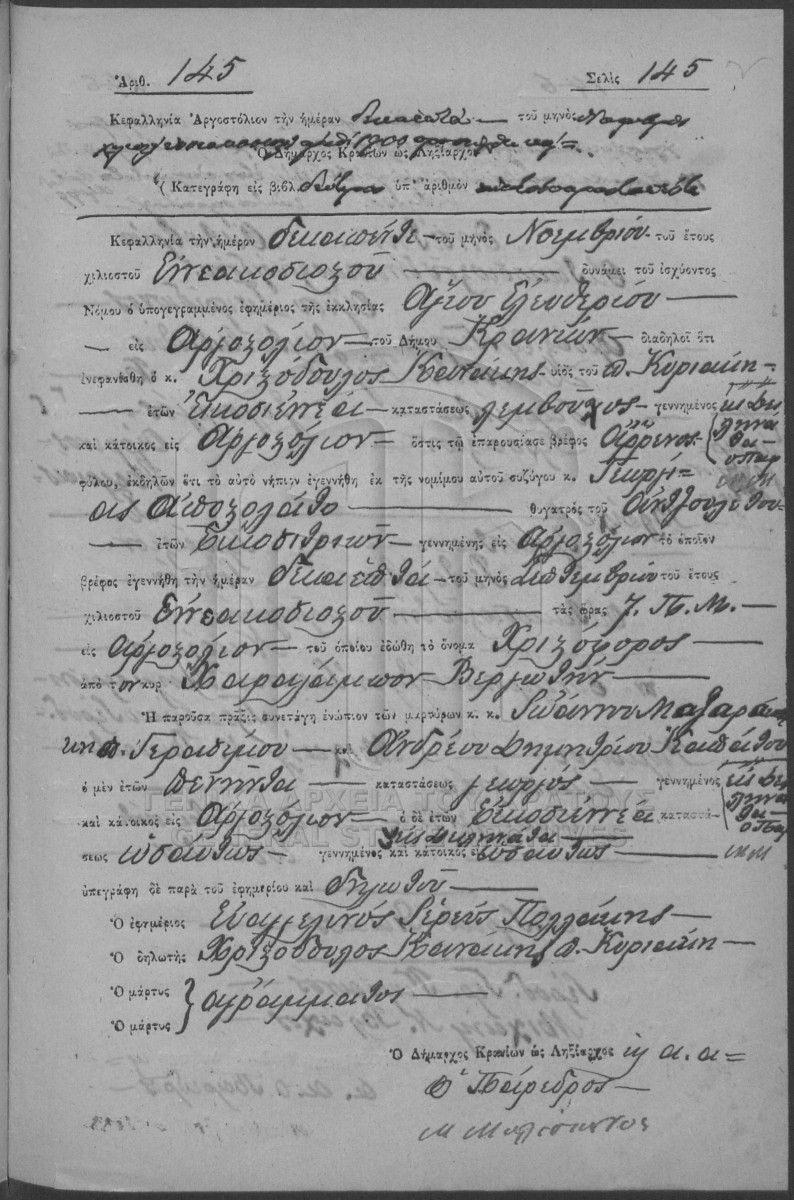 Ἀριθ. 145 Σελὶς 145
Κεφαλληνία Ἀργοστόλιον τὴν ἡμέραν τοῦ μηνὸς
Ὁ Δήμαρχος Κρανίων ὡς Ληξίαρχος
(Κατεγράφη εἰς βιβλ. ὑπ' ἀριθμὸν
Κεφαλληνία τὴν ἡμέραν δεκαπέντε τοῦ μηνὸς Νοεμβρίου τοῦ ἔτους
χιλιοστοῦ Ἐννεακοσιοστοῦ δυνάμει τοῦ ἰσχύοντος
Νόμου ὁ ὑπογεγραμμένος ἐφημέριος τῆς ἐκκλησίας Ἁγίου Ἐλευθερίου
εἰς Ἀργοστόλιον τοῦ Δήμου Κρανίων διαδηλοῖ ὅτι
ἐνεφανίσθη ὁ κ. Χριστόδουλος Κανάκης υἱὸς τοῦ π. Κυριάκη
ἐτῶν Εἰκοσιεννέα καταστάσεως λεμβοῦχος γεννημένος εἰς
καὶ κάτοικος εἰς Ἀργοστόλιον ὅστις τῷ ἐπαρουσίασε βρέφος ἄρρενος
φύλου, ἐκδηλῶν ὅτι τὸ αὐτὸ νήπιον ἐγεννήθη ἐκ τῆς νομίμου αὐτοῦ συζύγου κ. Γεωργί=
ας Ἀποστολάτο θυγατρὸς τοῦ Ἀντζουλέτου
ἐτῶν Εἰκοσιτριῶν γεννημένης εἰς Ἀργοστόλιον τὸ ὁποῖον
βρέφος ἐγεννήθη τὴν ἡμέραν δεκαεπτά τοῦ μηνὸς Σεπτεμβρίου τοῦ ἔτους
χιλιοστοῦ Ἐννεακοσιοστοῦ τὰς ὥρας 7. Π. Μ.
εἰς Ἀργοστόλιον τοῦ ὁποίου ἐδώθη τὸ ὄνομα Χριστόφορος
ἀπὸ τὸν κυρ Χαραλάμπον Βεργωτήν
Ἡ παροῦσα πρᾶξις συνετάγη ἐνώπιον τῶν μαρτύρων κ. κ. Ἰωάννου Μαζαρά
κη π. Γερασίμου καὶ Ἀνδρέου Δημητρίου Καππάτου
ὁ μὲν ἐτῶν πενῆντα καταστάσεως γεωργός γεννημένος εἰς
καὶ κάτοικος εἰς Ἀργοστόλιον ὁ δὲ ἐτῶν Εἰκοσιεννέα καταστά-
σεως ὡσαύτως γεννημένος καὶ κάτοικος εἰς ὡσαύτως
ὑπεγράφη δὲ παρὰ τοῦ ἐφημερίου καὶ δηλωτοῦ
Ὁ ἐφημέριος Εὐαγγελινός Ἱερεύς Πολλάκης
Ὁ δηλωτὴς Χριστόδουλος Κανάκης π. Κυριάκη
Ὁ μάρτυς
Ὁ μάρτυς } ἀγράμματος
Ὁ Δήμαρχος Κρανίων ὡς Ληξίαρχος κη α. α=
Ὁ Πάρεδρος
ΓΕΝΙΚΑ ΑΡΧΕΙΑ ΤΟΥ ΚΡΑΤΟΥΣ
GENERAL STATE ARCHIVES